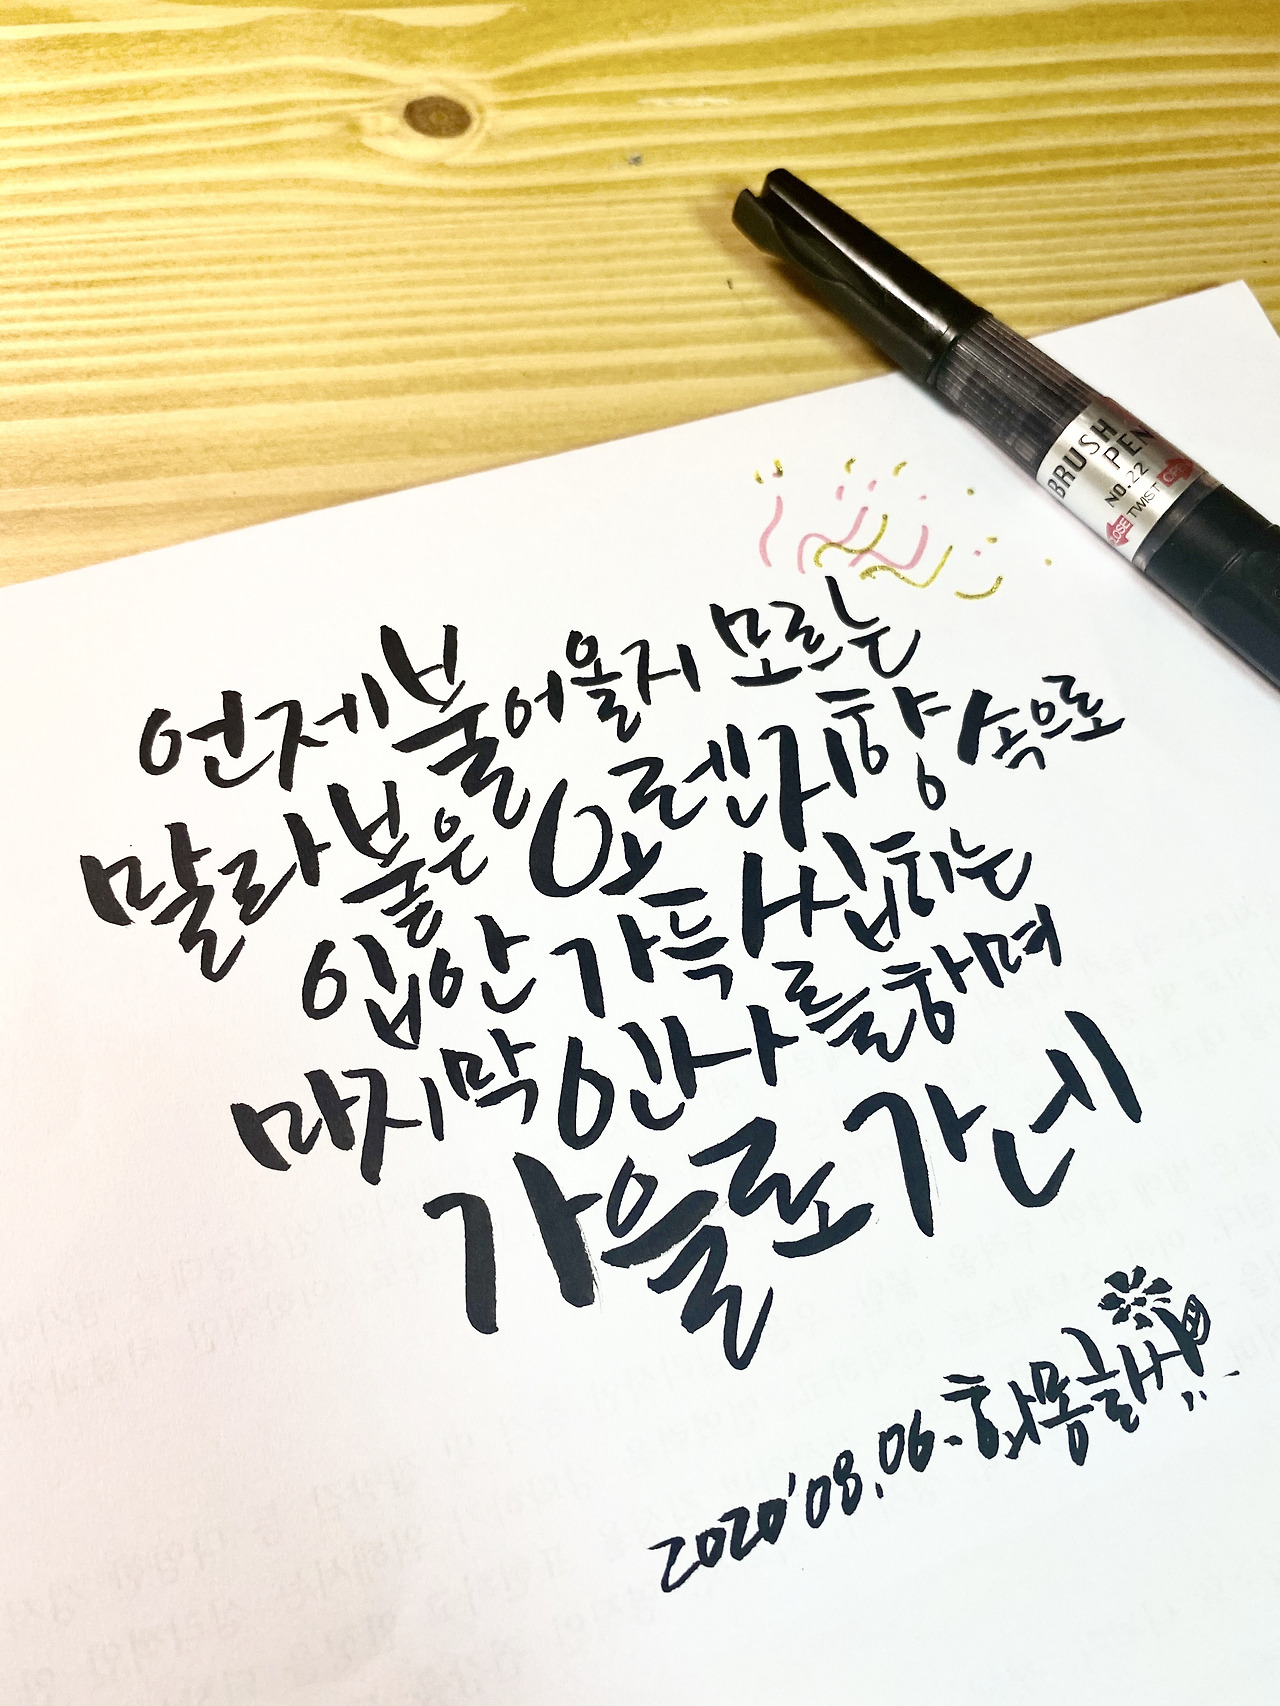 BRUSH PEN
NO.22
CLOSE TWIST
언제 불어올지 모르는
말라붙은 오렌지향 속으로
입안 가득 사 씹히는
마지막 인사를 하며
가을로 가네
2020'08.06.